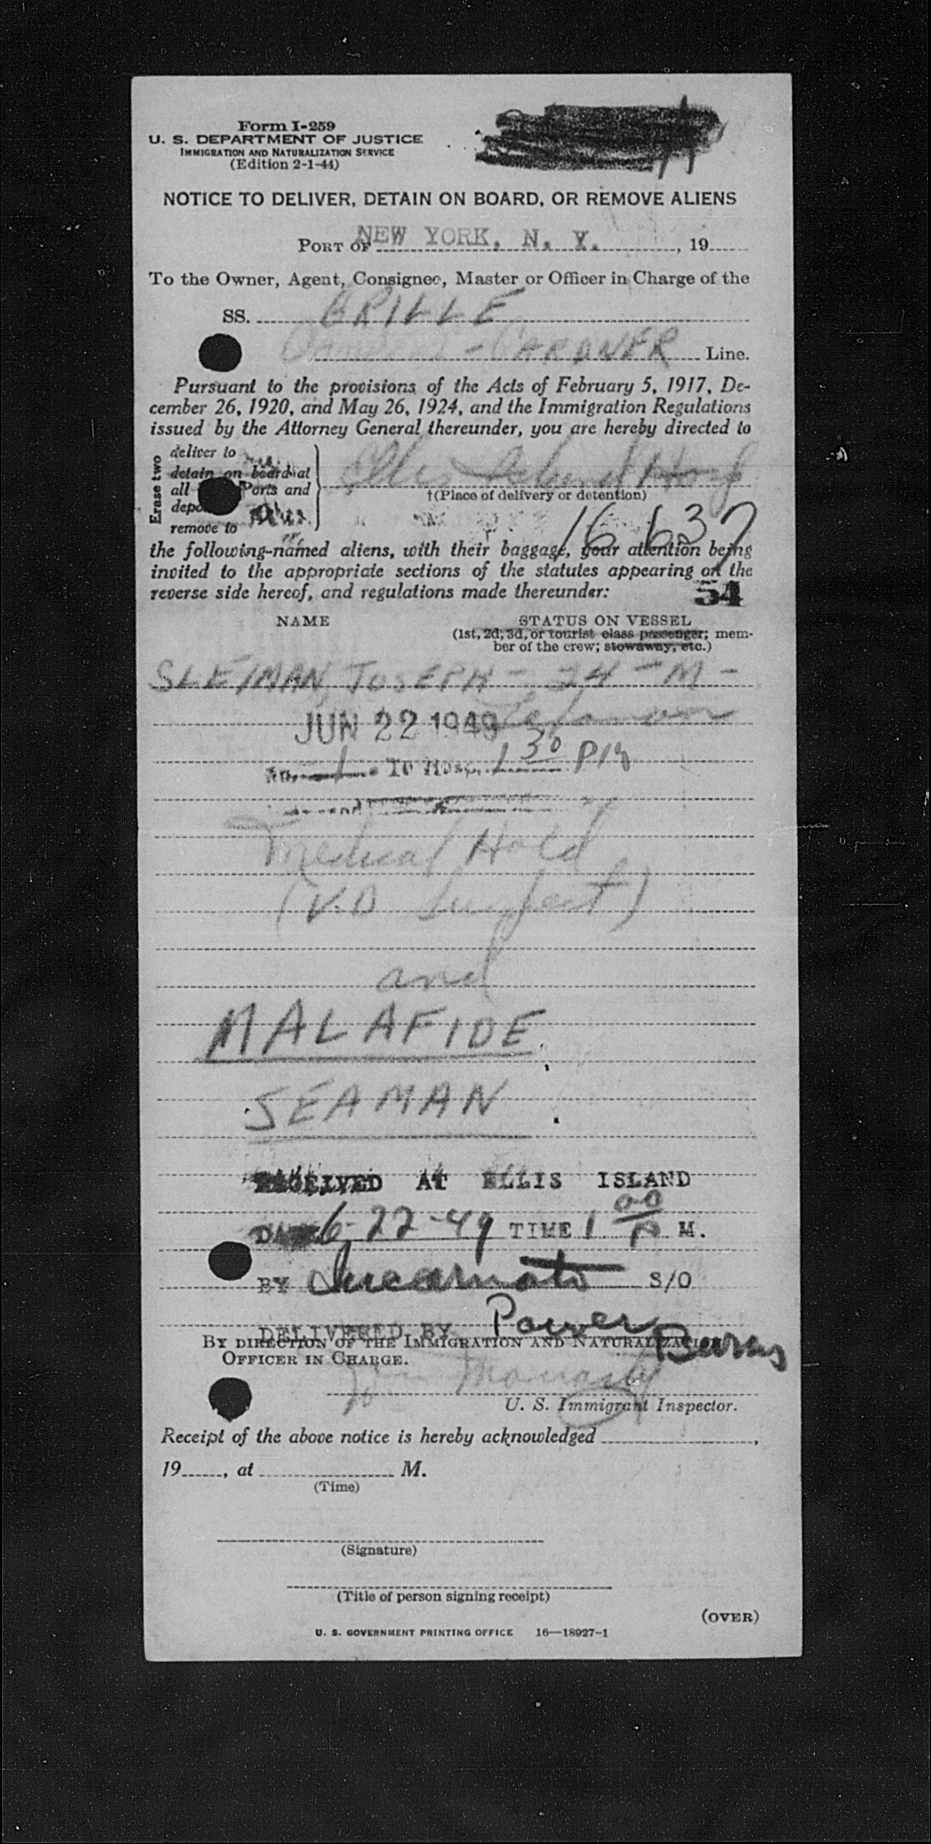 Form I-259
U. S. DEPARTMENT OF JUSTICE
IMMIGRATION AND NATURALIZATION SERVICE
(Edition 2-1-44)
NOTICE TO DELIVER, DETAIN ON BOARD, OR REMOVE ALIENS
PORT OF NEW YORK, N. Y. , 19
To the Owner, Agent, Consignee, Master or Officer in Charge of the
SS. GRILLE
- GARDNER Line.
Pursuant to the provisions of the Acts of February 5, 1917, De-
cember 26, 1920, and May 26, 1924, and the Immigration Regulations
issued by the Attorney General thereunder, you are hereby directed to
Erase two
deliver to
detain on board at
all Ports and
remove to
Ellis Island Hosp
†(Place of delivery or detention)
16 637
the following-named aliens, with their baggage, your attention being
invited to the appropriate sections of the statutes appearing on the
reverse side hereof, and regulations made thereunder:
54
NAME STATUS ON VESSEL
(1st, 2d, 3d, or tourist class passenger; mem-
ber of the crew; stowaway, etc.)
SLEIMAN JOSEPH - 24 - M -
Lebanon
JUN 22 1949
To Hosp. 1 30 PM
Medical Hold
(V.D Suspect)
and
MALAFIDE
SEAMAN
RECEIVED AT ELLIS ISLAND
DATE 6-22-49 TIME 1 00 P M.
BY Incarnato S/O
DELIVERED BY Power
BY DIRECTION OF THE IMMIGRATION AND NATURALIZATION
OFFICER IN CHARGE.
U. S. Immigrant Inspector.
Receipt of the above notice is hereby acknowledged ,
19 , at M.
(Time)
(Signature)
(Title of person signing receipt)
(OVER)
U. S. GOVERNMENT PRINTING OFFICE 16—18927-1